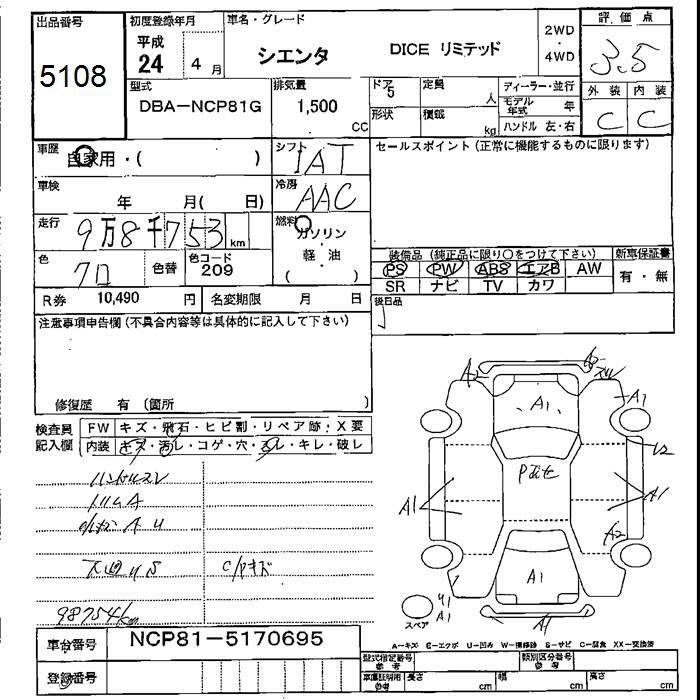 出品番号 初度登録年月 車名・グレード 評価点
5108 平成 24 年 4 月 シエンタ DICE リミテッド 2WD・4WD 3.5
型式 排気量 ドア 5 定員 人 ディーラー・並行 外装 内装
DBA-NCP81G 1,500 CC 形状 積載 kg モデル年式 年 C C
ハンドル 左・右
車歴 自家用・( ) シフト IAT セールスポイント (正常に機能するものに限ります)
車検 年 月( 日) 冷房 AAC
走行 9万8千753 km 燃料 ガソリン・軽油 ( )
色 クロ 色替 色コード 209
装備品 (純正品に限り○をつけて下さい) 新車保証書
PS PW ABS エアB AW 有・無
SR ナビ TV カワ
R券 10,490 円 名変期限 月 日 後日品
注意事項申告欄 (不具合内容等は具体的に記入して下さい)
修復歴 有 (箇所 )
検査員記入欄 FW キズ・飛石・ヒビ割・リペア跡・X要
内装 キズ・汚レ・コゲ・穴・スレ・キレ・破レ
ハンドルスレ
トリムA
98754km
A2 A1 A1 A2 A1 A1 A1 A1 A1
スペア
A-キズ E-エクボ U-凹み W-補修跡 S-サビ C-腐食 XX-交換済
車台番号 NCP81-5170695
登録番号
型式指定番号 参考 類別区分番号 参考
車庫証明用 参考 長さ cm 幅 cm 高さ cm